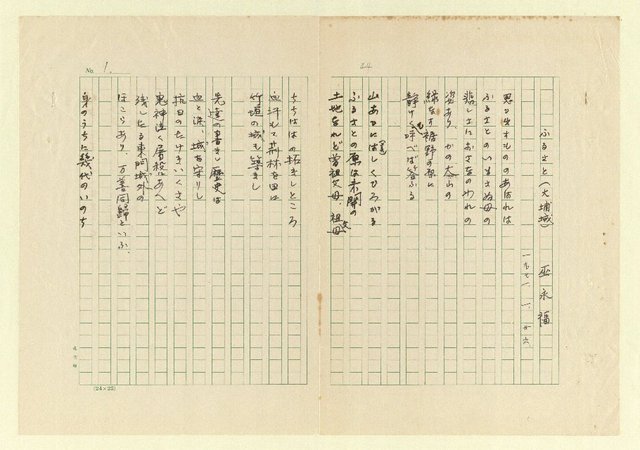 24
ふるさと(大埔城)
巫永福
一九七一、一、廿六
思ひ出すもののあはれは
ふるさとのいまさぬ母の
悲しさにおさなわれの
姿あり、かの大山の
緑なす裾野の如に
静けく呼べば答ふる
山あひにはしくひろがる
ふるさとの原は未開の
土地なれど曾祖父母、祖父母
No. 1.
ちちははの拓きしところ
血汗もて荊林を田は
竹垣の城も築きし
先達の書きし歴史は
血と涙、城を守りし
抗日のたけきいくさや
鬼神泣く屠殺にあへど
残したる東門城外の
ほこらあり、万善同歸といふ、
身のうちに幾代のいのち
(24×25)